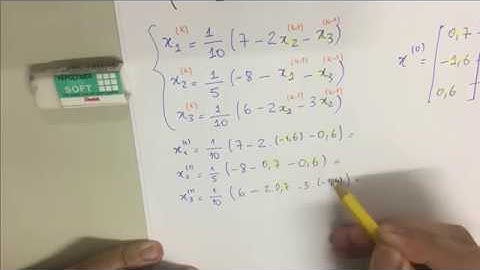 x₁⁽ᵏ⁾ = 1/10 (7 - 2x₂⁽ᵏ⁻¹⁾ - x₃⁽ᵏ⁻¹⁾)
x₂⁽ᵏ⁾ = 1/5 (-8 - x₁⁽ᵏ⁻¹⁾ - x₃⁽ᵏ⁻¹⁾)
x₃⁽ᵏ⁾ = 1/10 (6 - 2x₁⁽ᵏ⁻¹⁾ - 3x₂⁽ᵏ⁻¹⁾)
x⁽⁰⁾ = [0,7
-1,6
0,6
x₁⁽¹⁾ = 1/10 (7 - 2 · (-1,6) - 0,6) =
x₂⁽¹⁾ = 1/5 (-8 - 0,7 - 0,6) =
x₃⁽¹⁾ = 1/10 (6 - 2·0,7 - 3 · (-1,6)) =
SOFT
Pentel